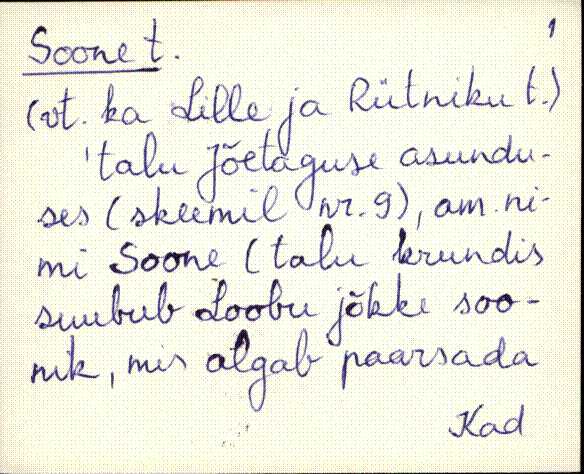 1
Soone t.
(vt. ka Lille ja Rütniku t.)
'talu Jõetaguse asundu-
ses (skeemil nr. 9), am. ni-
mi Soone (talu krundis
suubub Loobu jõkke soo-
nik, mis algab paarsada
Kad